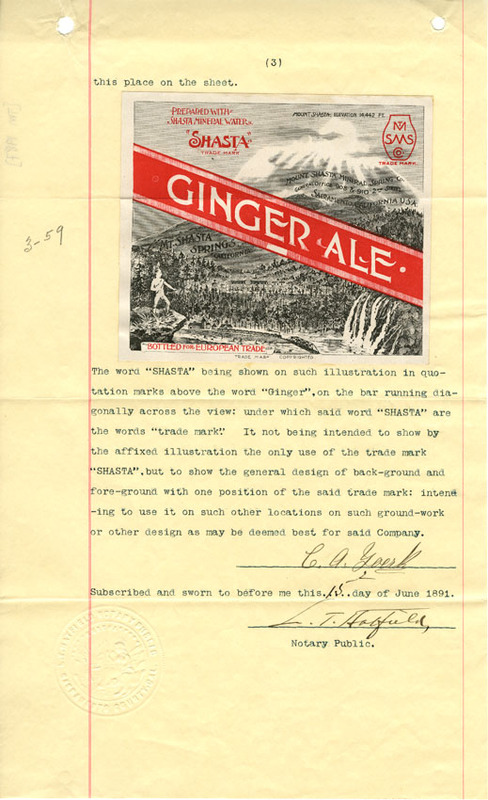 (3)
this place on the sheet.
PREPARED WITH
SHASTA MINERAL WATER
"SHASTA"
TRADE MARK
MOUNT SHASTA: ELEVATION 14,442 FT.
M
SMS
Co
TRADE MARK.
MOUNT SHASTA MINERAL SPRING Co
GENERAL OFFICE 908 & 910 2ND STREET
SACRAMENTO, CALIFORNIA U.S.A.
GINGER ALE.
MT. SHASTA
SPRINGS
CALIFORNIA
3-59
"BOTTLED FOR EUROPEAN TRADE"
TRADE MARK COPYRIGHTED
The word "SHASTA" being shown on such illustration in quo-
tation marks above the word "Ginger",on the bar running dia-
gonally across the view: under which said word "SHASTA" are
the words "trade mark". It not being intended to show by
the affixed illustration the only use of the trade mark
"SHASTA",but to show the general design of back-ground and
fore-ground with one position of the said trade mark: intend
-ing to use it on such other locations on such ground-work
or other design as may be deemed best for said Company.
C. A. Yoerk
Subscribed and sworn to before me this.15.day of June 1891.
L. T. Hatfield,
Notary Public.